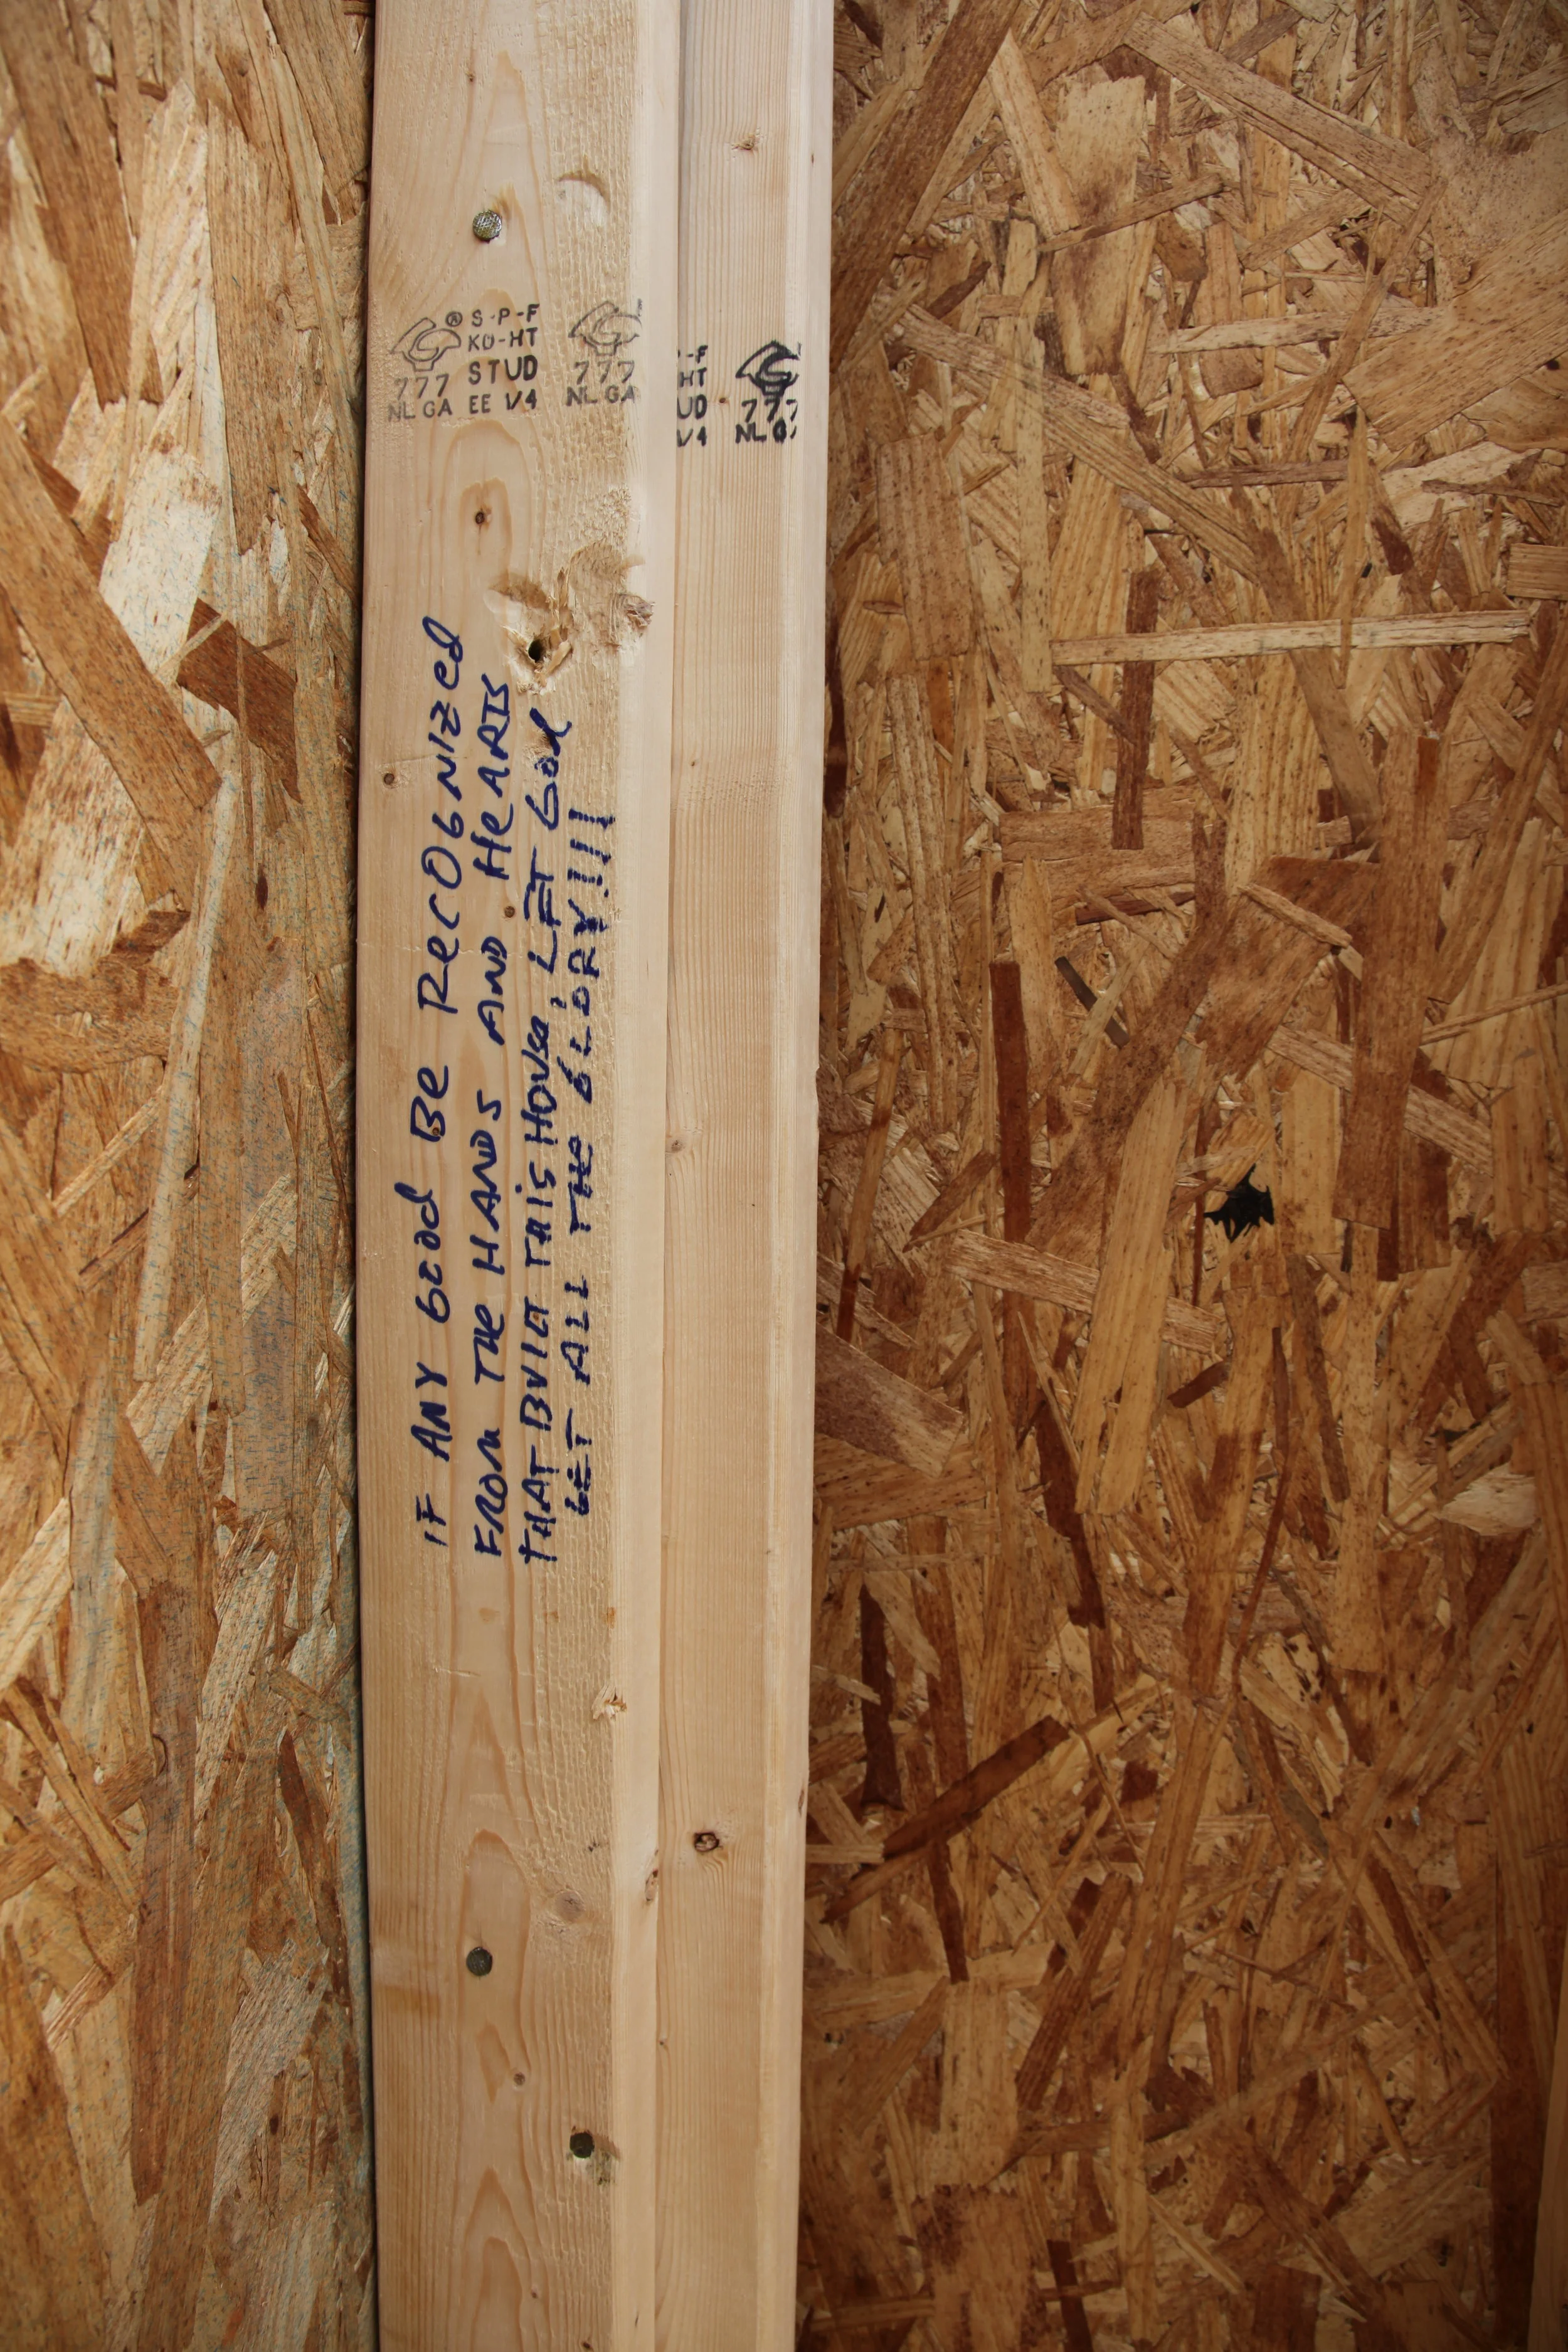 ® S-P-F
KD-HT
777 STUD
NLGA EE V4
777
NLGA
P-F
HT
UD
V4
777
NLGA
IF ANY Good Be RecOGNIzed
FROM THe HANDS AND HeARTS
THAT BUILT THiS HOUse, LET God
GET ALL THe GLORY!!!!